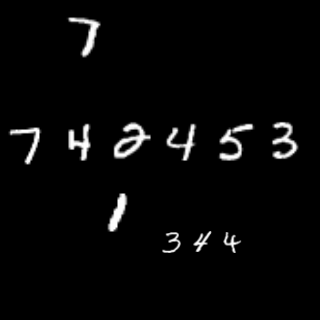 7
742453
1
344